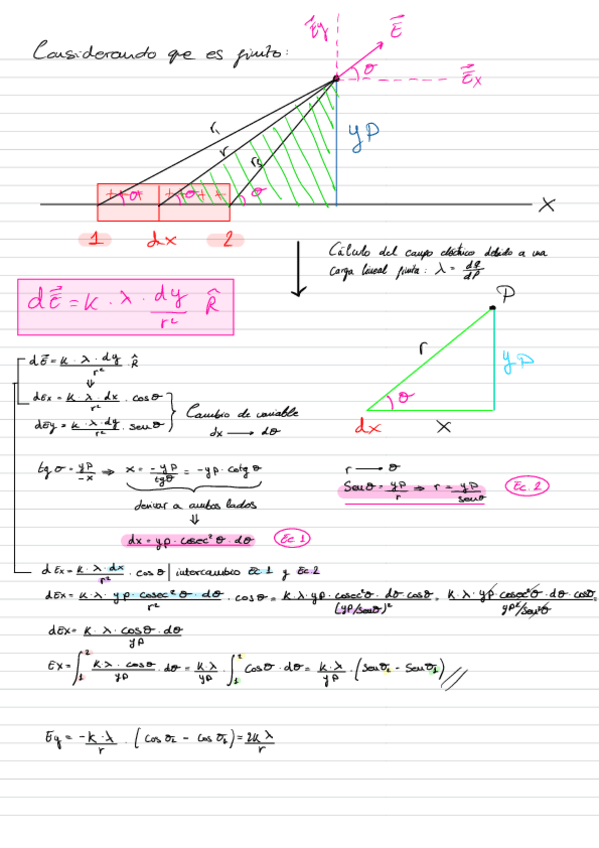 Considerando que es finito:
E⃗y
E⃗
θ
E⃗x
r₁
r
r₂
yP
+ + + + + +
σ θ θ
X
1 dx 2
Cálculo del campo eléctrico debido a una
carga lineal finita: λ = dq/dP
dE⃗ = K · λ · dy/r² R̂
P
r
yP
θ
dx
X
dE⃗ = K · λ · dy/r² · R̂
⇓
dEx = K · λ · dx/r² · cosθ
dEy = K · λ · dy/r² · senθ
Cambio de variable
dx → dθ
tg σ = yP/-x ⇒ x = -yP/tgθ = -yP · cotg θ
derivar a ambos lados
⇓
dx = yP · cosec² θ · dθ Ec 1
r → θ
Senθ = yP/r ⇒ r = yP/senθ Ec. 2
dEx = K · λ · dx/r² · cosθ | intercambio Ec 1 y Ec 2
dEx = K · λ · yP · cosec² θ · dθ/r² · cosθ = K · λ · yP · cosec²θ · dθ cosθ/(yP/senθ)² = K · λ · yP cosec²θ · dθ cosθ/yP²/sen²θ
dEx = K · λ · cosθ · dθ/yP
Ex = ∫₁² Kλ · cosθ/yP · dθ = K·λ/yP · ∫₁² cosθ · dθ = K·λ/yP · (senθ₂ - senθ₁)
Ey = -K·λ/r · (cos θ₂ - cos θ₁) = 2Kλ/r